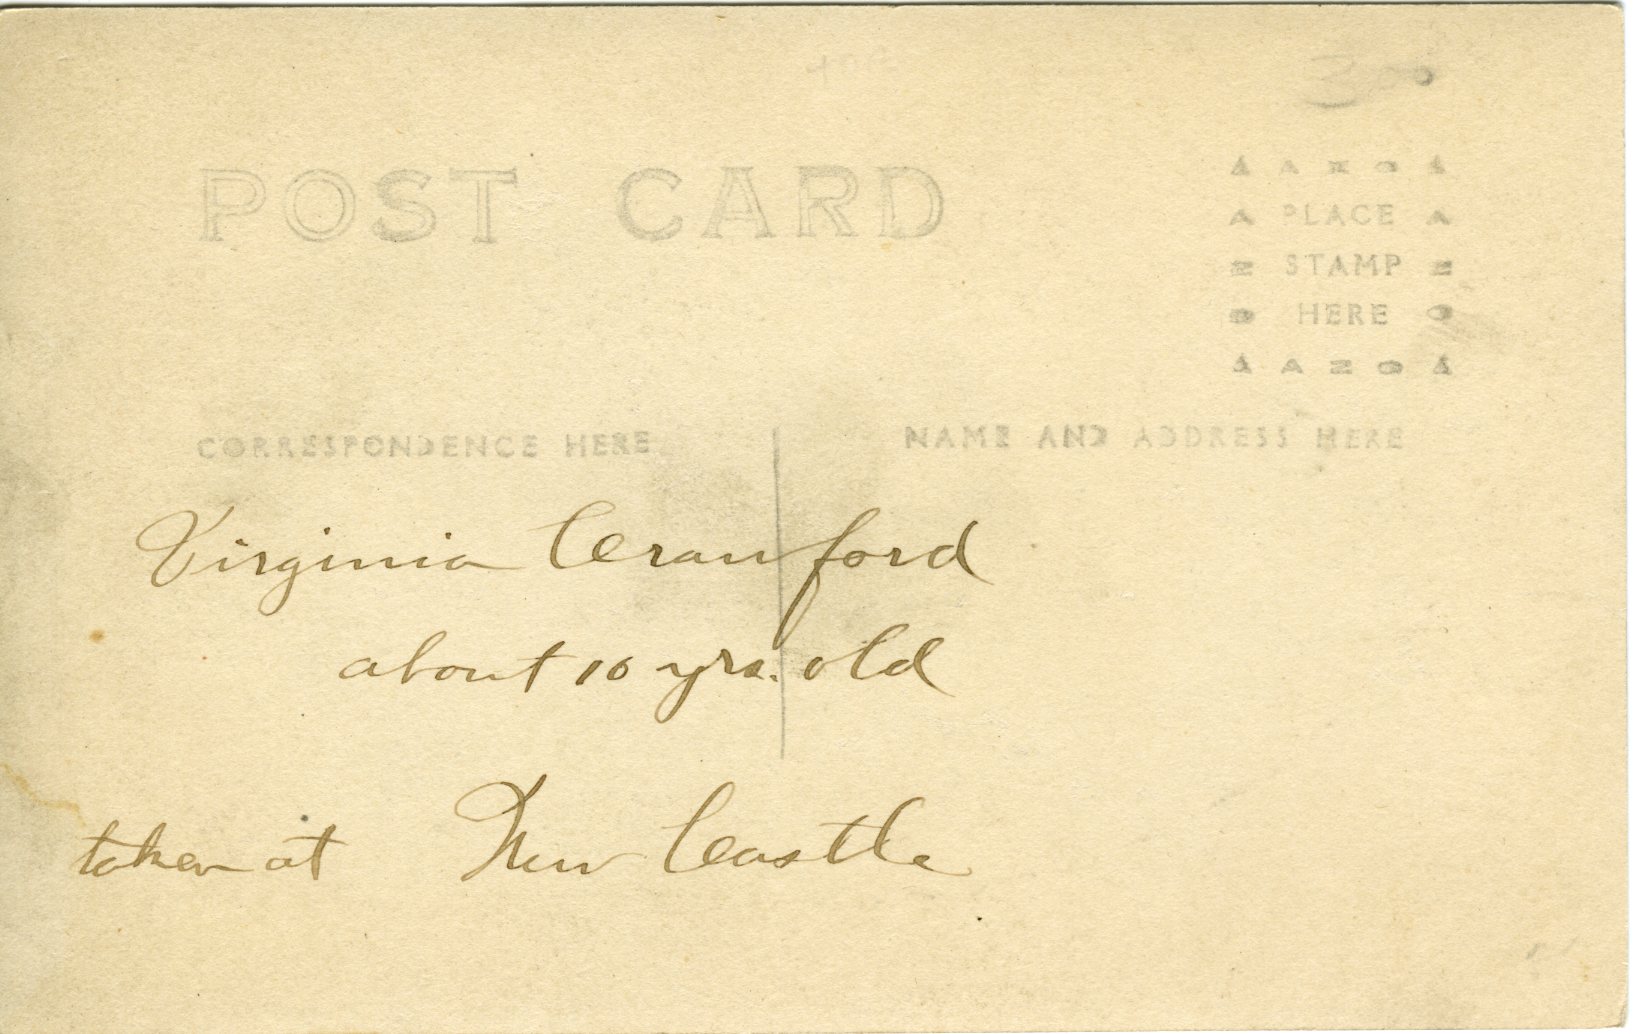 POST CARD
AZO
PLACE
STAMP
HERE
AZO
CORRESPONDENCE HERE
NAME AND ADDRESS HERE
Virginia Crawford
about 10 yrs. old
taken at New Castle